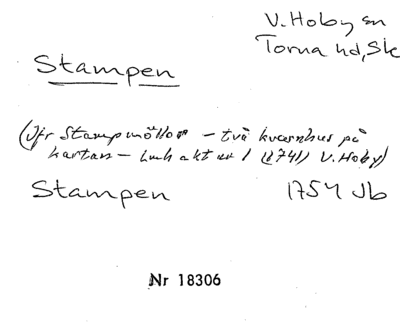 V. Hoby sn
Torna hd, Sk
Stampen
(Jfr Stampmöllor - två kvarnhus på
kartan - Lmh akt nr 1 (1741) V. Hoby)
Stampen 1754 Jb
Nr 18306